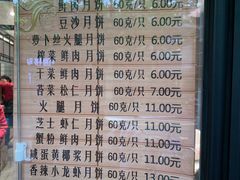 鲜肉月饼 60克/只 6.00元
豆沙月饼 60克/只 6.00元
萝卜丝火腿月饼 60克/只 6.00元
榨菜鲜肉月饼 60克/只 6.00元
干菜鲜肉月饼 60克/只 6.00元
苔菜松仁月饼 60克/只 7.00元
火腿月饼 60克/只 11.00元
芝士虾仁月饼 60克/只 11.00元
蟹粉鲜肉月饼 60克/只 11.00元
咸蛋黄椰浆月饼 60克/只 11.00元
香辣小龙虾月饼 60克/只 13.00元